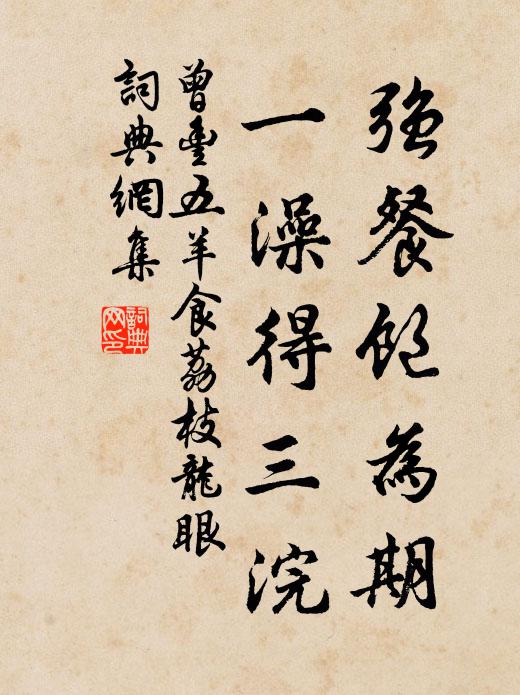 强餐飽為期
一澡得三浣
曾豐五羊食荔枝龍眼
詞典網集
詞典網印